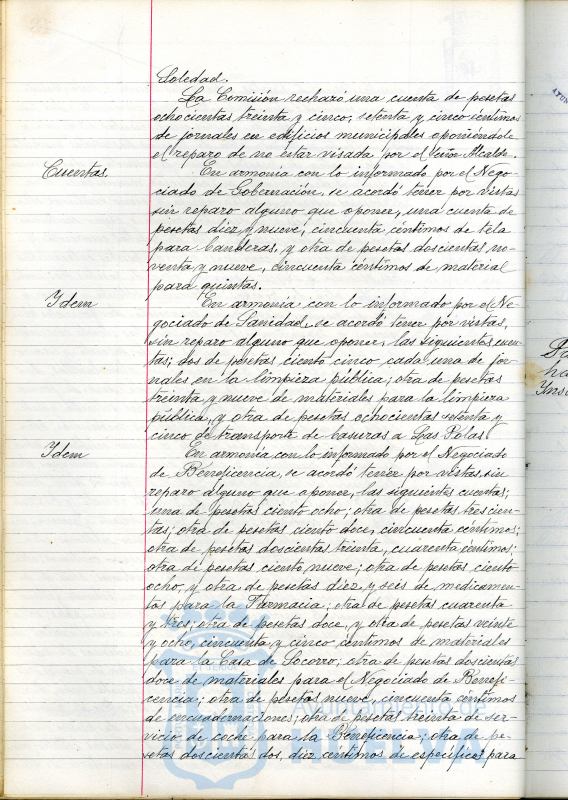 Soledad.
La Comisión rechazó una cuenta de pesetas
ochocientas treinta y cinco, setenta y cinco céntimos
de jornales en edificios municipales oponiéndole
el reparo de no estar visada por el Señor Alcalde.
Cuentas
En armonía con lo informado por el Nego-
ciado de Gobernación, se acordó tener por vistas
sin reparo alguno que oponer, una cuenta de
pesetas diez y nueve, cincuenta céntimos de tela
para banderas, y otra de pesetas doscientas no-
venta y nueve, cincuenta céntimos de material
para quintas.
Ydem
En armonía con lo informado por el Ne-
gociado de Sanidad, se acordó tener por vistas,
sin reparo alguno que oponer, las siguientes cuen-
tas; dos de pesetas ciento cinco cada una de jor-
nales en la limpieza pública; otra de pesetas
treinta y nueve de materiales para la limpieza
pública, y otra de pesetas ochocientas setenta y
cinco de transporte de basuras a Las Polas
Ydem
En armonía con lo informado por el Negociado
de Beneficencia, se acordó tener por vistas, sin
reparo alguno que oponer, las siguientes cuentas;
una de pesetas ciento ocho; otra de pesetas trescien-
tas; otra de pesetas ciento doce, cincuenta céntimos;
otra de pesetas doscientas treinta, cuarenta céntimos;
otra de pesetas ciento nueve; otra de pesetas ciento
ocho, y otra de pesetas diez y seis de medicamen-
tos para la Farmacia; otra de pesetas cuarenta
y tres; otra de pesetas doce, y otra de pesetas veinte
y ocho, cincuenta y cinco céntimos de materiales
para la Casa de Socorro; otra de pesetas doscientas
doce de materiales para el Negociado de Benefi-
cencia; otra de pesetas nueve, cincuenta céntimos
de encuadernaciones; otra de pesetas treinta de ser-
vicio de coche para la Beneficencia; otra de pe-
setas doscientas dos, diez céntimos de específicos para
Ayuntamiento de
HUELVA